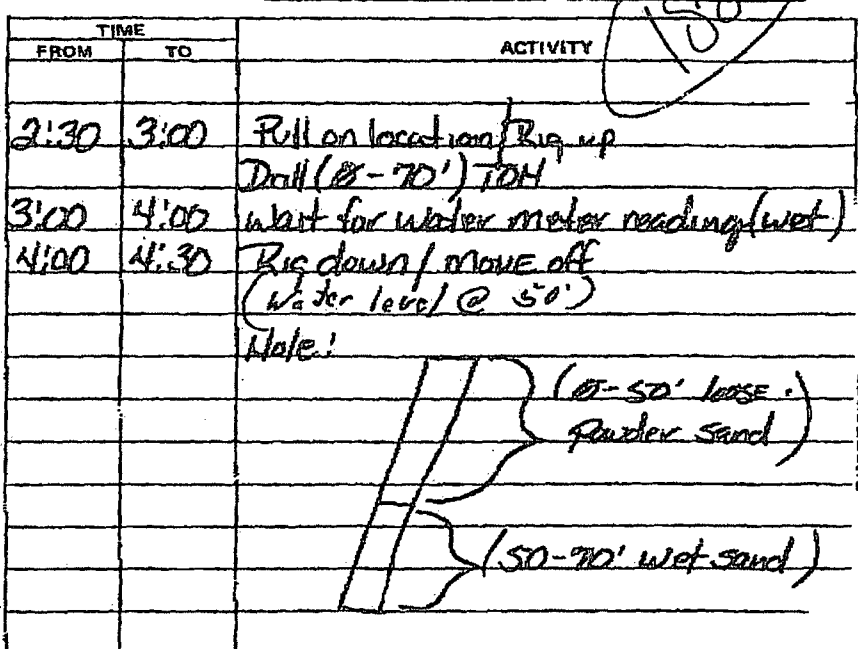 TIME
FROM TO ACTIVITY
2:30 3:00 Pull on location/Rig up
Drill (0-70') TOH
3:00 4:00 wait for water meter reading (wet)
4:00 4:30 Rig down/ move off
(water level @ 50')
Hole:
(0-50' loose
Powder sand)
(50-70' wet sand)